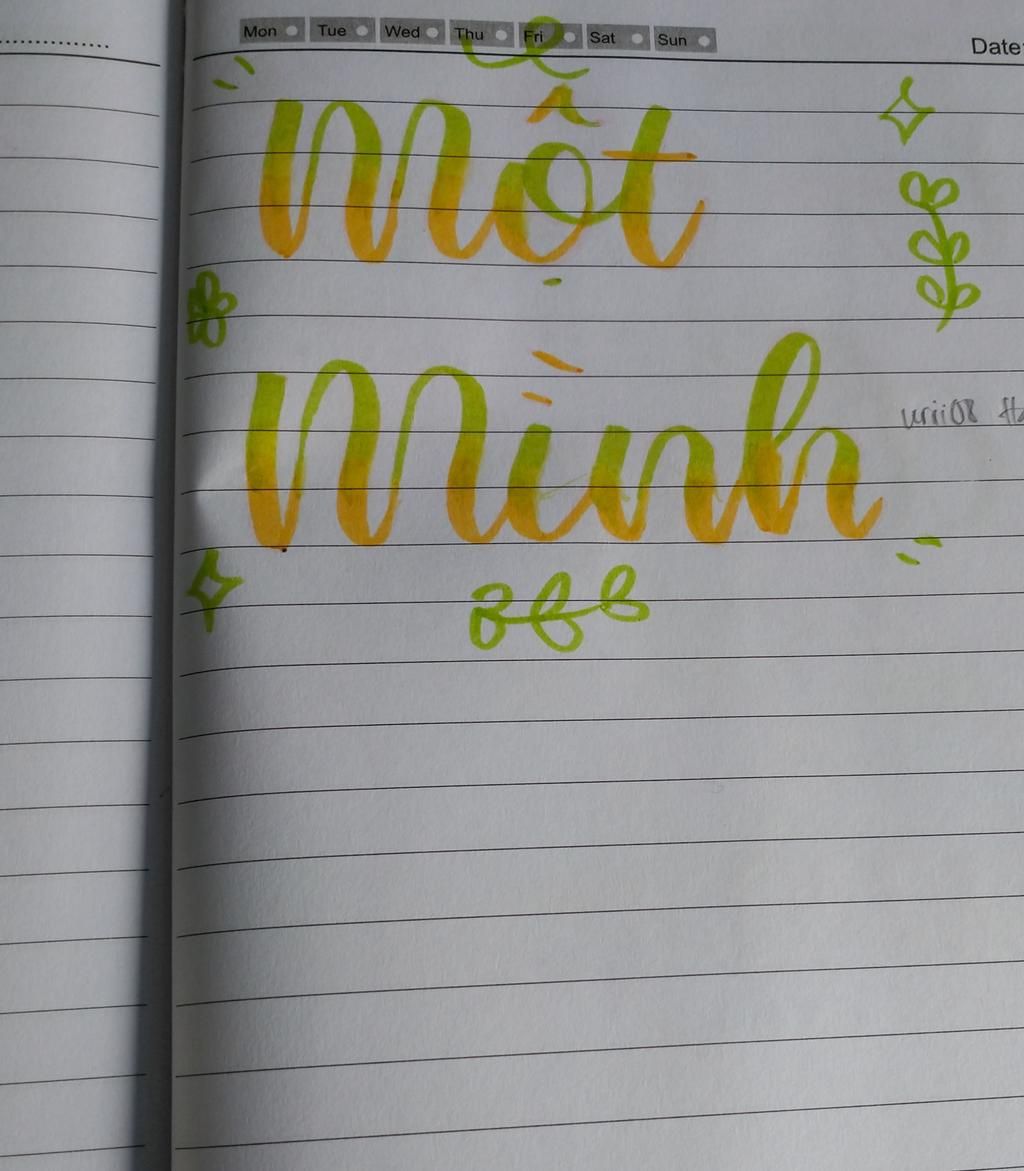 Mon Tue Wed Thu Fri Sat Sun
Date:
Một
Mình
urii08